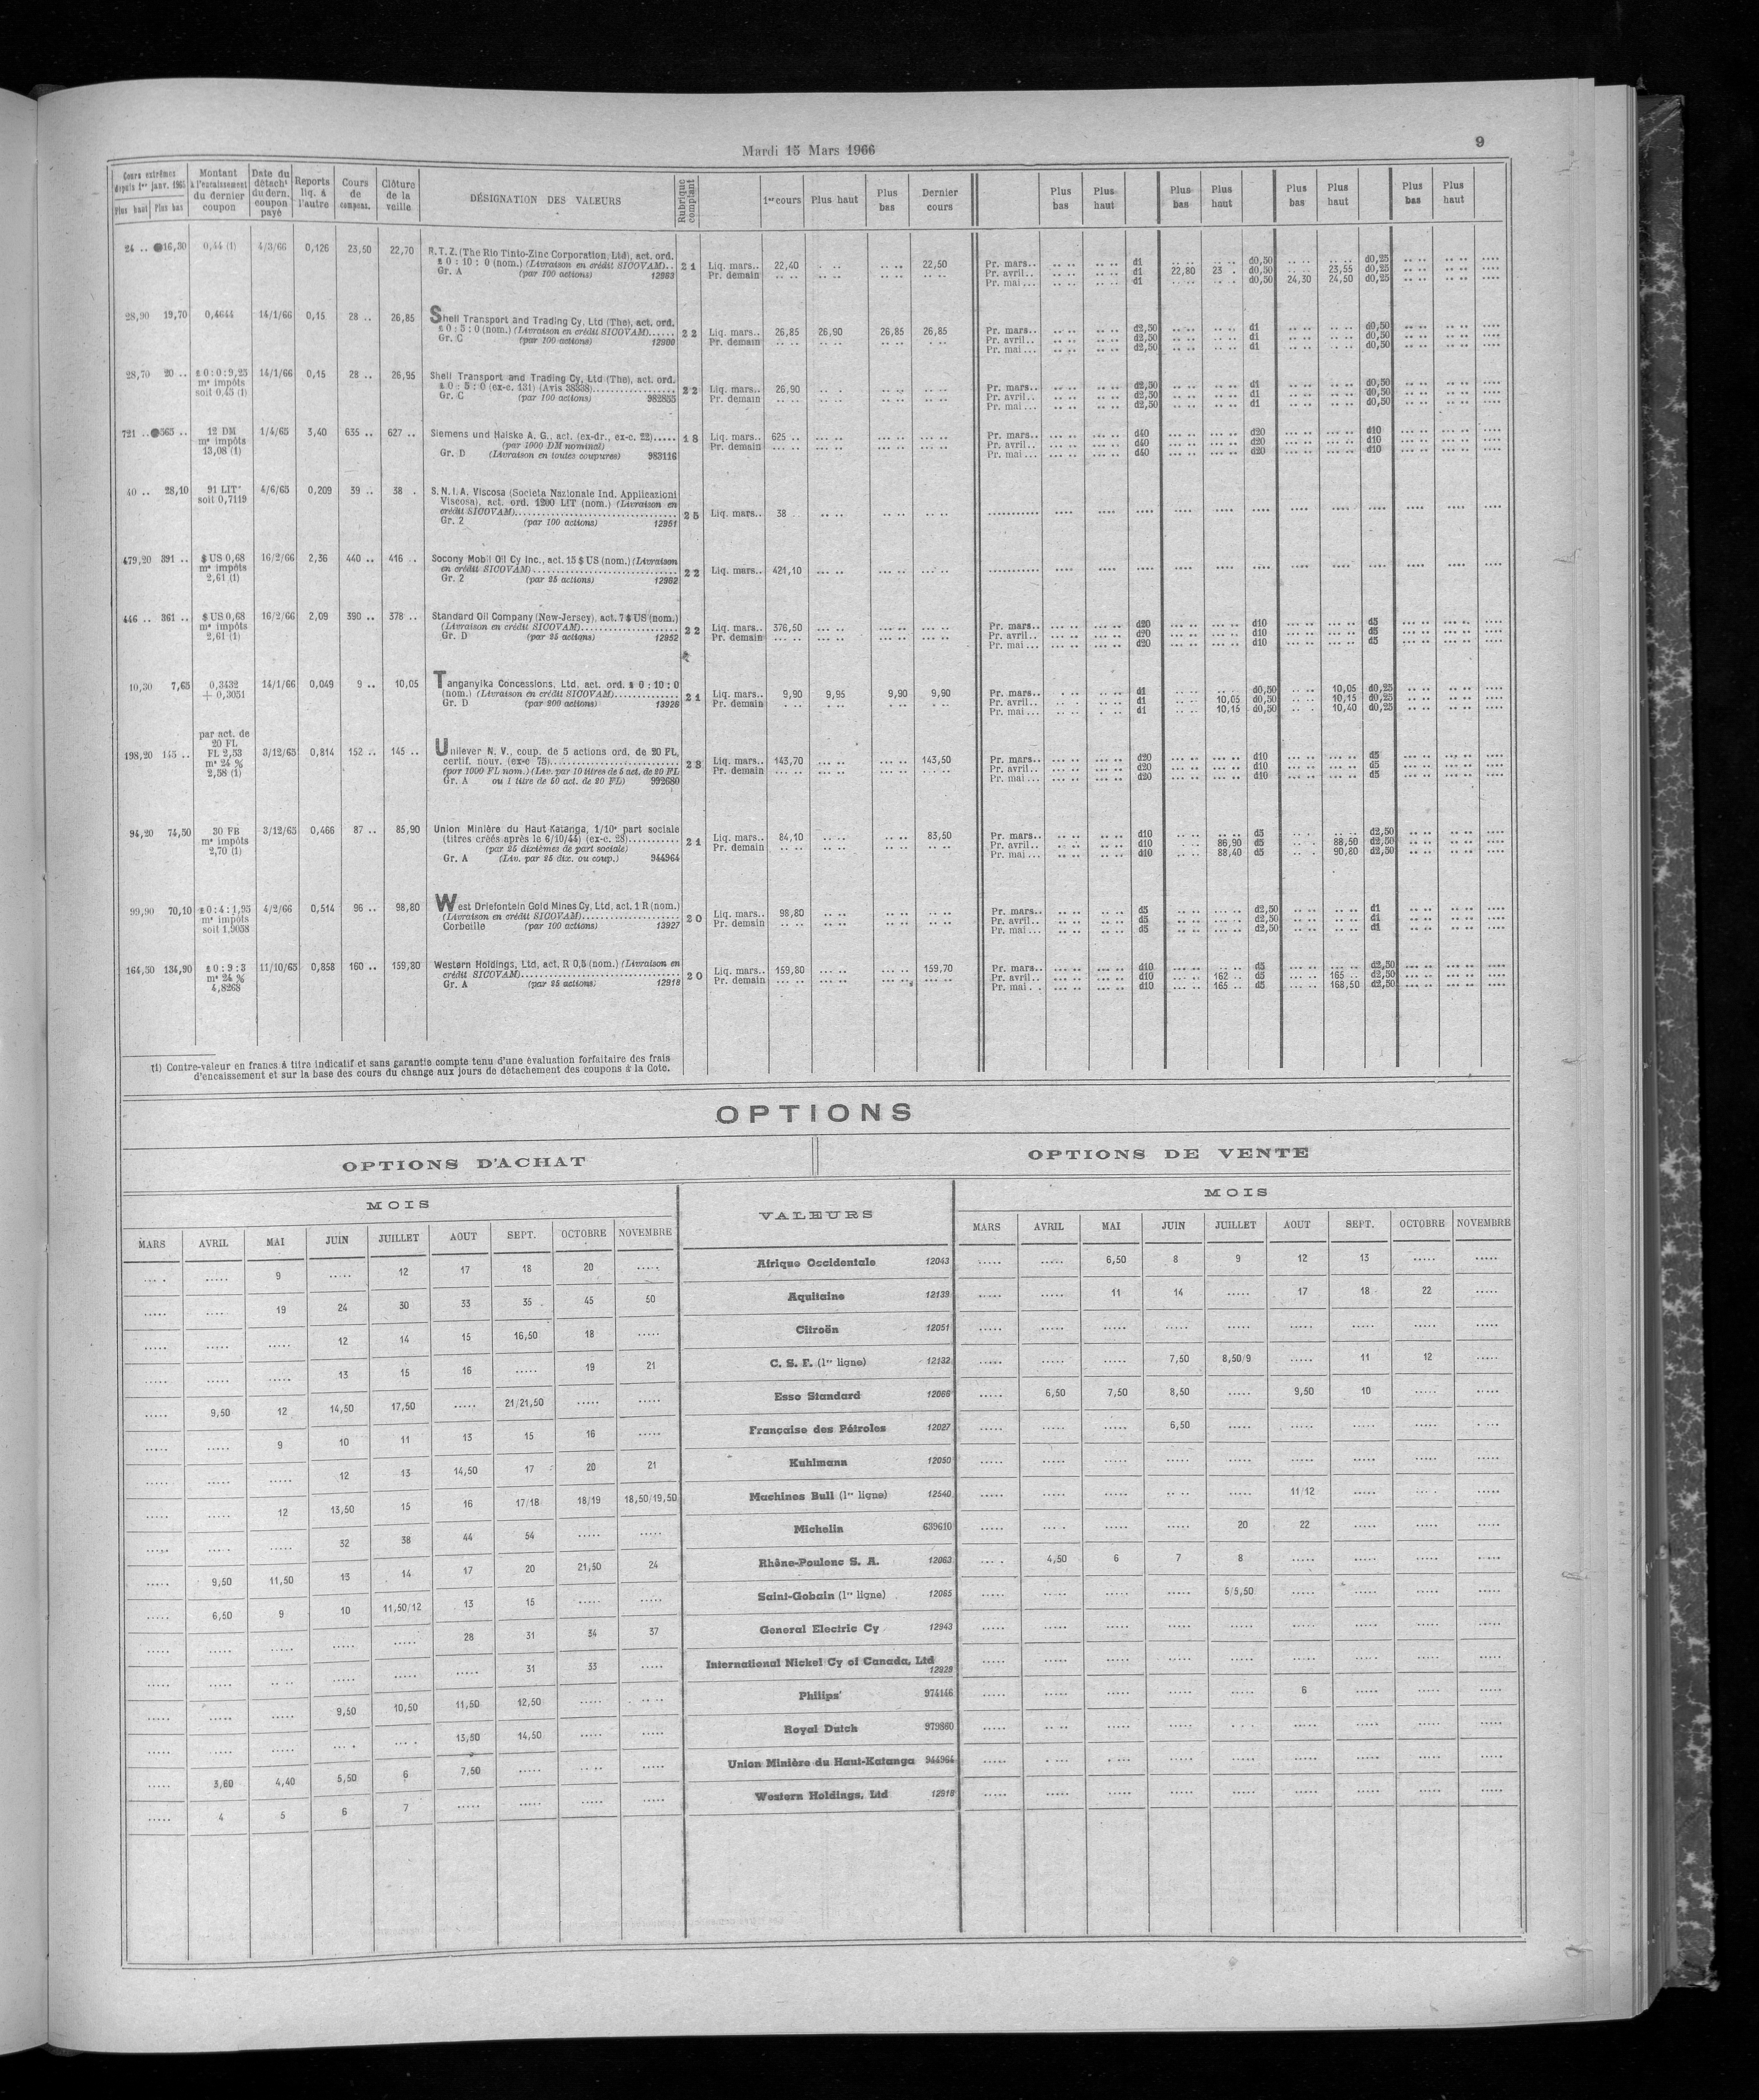 Mardi 15 Mars 1966
9
Cours extrêmes depuis 1er janv. 1965 Plus haut Plus bas | Montant à l'encaissement du dernier coupon | Date du détacht du dern. coupon payé | Reports liq. à l'autre | Cours de compens. | Clôture de la veille | DÉSIGNATION DES VALEURS | Rubrique comptant | 1er cours | Plus haut | Plus bas | Dernier cours | Plus bas | Plus haut | Plus bas | Plus haut | Plus bas | Plus haut | Plus bas | Plus haut
24 .. 16,30 0,44 (1) 4/3/66 0,126 23,50 22,70 R.T.Z. (The Rio Tinto-Zinc Corporation, Ltd), act. ord.
£ 0 : 10 : 0 (nom.) (Livraison en crédit SICOVAM).. 21 Liq. mars.. 22,40 22,50 Pr. mars.. d1 d0,50 d0,25
Gr. A (par 100 actions) 12983 Pr. demain Pr. avril.. d1 22,80 23 . d0,50 23,55 d0,25
Pr. mai... d1 d0,50 24,30 24,50 d0,25
28,90 19,70 0,4644 14/1/66 0,15 28 .. 26,85 Shell Transport and Trading Cy, Ltd (The), act. ord.
£ 0 : 5 : 0 (nom.) (Livraison en crédit SICOVAM)...... 22 Liq. mars.. 26,85 26,90 26,85 26,85 Pr. mars.. d2,50 d1 d0,50
Gr. C (par 100 actions) 12900 Pr. demain Pr. avril.. d2,50 d1 d0,50
Pr. mai... d2,50 d1 d0,50
28,70 20 .. £ 0 : 0 : 9,25 14/1/66 0,15 28 .. 26,95 Shell Transport and Trading Cy, Ltd (The), act. ord.
ms impôts £ 0 : 5 : 0 (ex-c. 131) (Avis 38338)...... 22 Liq. mars.. 26,90 Pr. mars.. d2,50 d1 d0,50
soit 0,45 (1) Gr. C (par 100 actions) 982855 Pr. demain Pr. avril.. d2,50 d1 d0,50
Pr. mai... d2,50 d1 d0,50
721 .. 565 .. 12 DM 1/4/65 3,40 635 .. 627 .. Siemens und Halske A. G., act. (ex-dr., ex-c. 22)..... 18 Liq. mars.. 625 .. Pr. mars.. d40 d20 d10
ms impôts (par 1000 DM nominal) Pr. demain Pr. avril.. d40 d20 d10
13,08 (1) Gr. D (Livraison en toutes coupures) 983116 Pr. mai... d40 d20 d10
40 .. 28,10 91 LIT 4/6/65 0,209 39 .. 38 . S.N.I.A. Viscosa (Societa Nazionale Ind. Applicazioni
soit 0,7119 Viscosa), act. ord. 1200 LIT (nom.) (Livraison en
crédit SICOVAM)...... 25 Liq. mars.. 38
Gr. 2 (par 100 actions) 12951
479,20 391 .. $ US 0,68 16/2/66 2,36 440 .. 416 .. Socony Mobil Oil Cy Inc., act. 15 $ US (nom.) (Livraison
ms impôts en crédit SICOVAM)...... 22 Liq. mars.. 421,10
2,61 (1) Gr. 2 (par 25 actions) 12982
446 .. 361 .. $ US 0,68 16/2/66 2,09 390 .. 378 .. Standard Oil Company (New-Jersey), act. 7 $ US (nom.)
ms impôts (Livraison en crédit SICOVAM)...... 22 Liq. mars.. 376,50 Pr. mars.. d20 d10 d5
2,61 (1) Gr. D (par 25 actions) 12952 Pr. demain Pr. avril.. d20 d10 d5
Pr. mai... d20 d10 d5
10,30 7,65 0,3432 14/1/66 0,049 9 .. 10,05 Tanganyika Concessions, Ltd, act. ord. £ 0 : 10 : 0
+ 0,3051 (nom.) (Livraison en crédit SICOVAM)...... 21 Liq. mars.. 9,90 9,95 9,90 9,90 Pr. mars.. d1 d0,50 10,05 d0,25
Gr. D (par 200 actions) 13926 Pr. demain Pr. avril.. d1 10,05 d0,50 10,15 d0,25
Pr. mai... d1 10,15 d0,50 10,40 d0,25
par act. de
20 FL
198,20 145 .. FL 2,53 3/12/65 0,814 152 .. 145 .. Unilever N. V., coup. de 5 actions ord. de 20 FL,
ms 24 % certif. nouv. (ex-c 75)...... 28 Liq. mars.. 143,70 143,50 Pr. mars.. d20 d10 d5
2,58 (1) (por 1000 FL nom.) (Liv. par 10 titres de 5 act. de 20 FL Pr. demain Pr. avril.. d20 d10 d5
Gr. A ou 1 titre de 50 act. de 20 FL) 992680 Pr. mai... d20 d10 d5
94,20 74,50 30 FB 3/12/65 0,466 87 .. 85,90 Union Minière du Haut Katanga, 1/10e part sociale
ms impôts (titres créés après le 6/10/44) (ex-c. 28)...... 21 Liq. mars.. 84,10 83,50 Pr. mars.. d10 d5 d2,50
2,70 (1) (par 25 dixièmes de part sociale) Pr. demain Pr. avril.. d10 86,90 d5 88,50 d2,50
Gr. A (Liv. par 25 dix. ou coup.) 944964 Pr. mai... d10 88,40 d5 90,80 d2,50
99,90 70,10 £ 0 : 4 : 1,95 4/2/66 0,514 96 .. 98,80 West Driefontein Gold Mines Cy, Ltd, act. 1 R (nom.)
ms impôts (Livraison en crédit SICOVAM)...... 20 Liq. mars.. 98,80 Pr. mars.. d5 d2,50 d1
soit 1,9058 Corbeille (par 100 actions) 13927 Pr. demain Pr. avril.. d5 d2,50 d1
Pr. mai... d5 d2,50 d1
164,50 134,90 £ 0 : 9 : 3 11/10/65 0,858 160 .. 159,80 Western Holdings, Ltd, act. R 0,5 (nom.) (Livraison en
ms 24 % crédit SICOVAM)...... 20 Liq. mars.. 159,80 159,70 Pr. mars.. d10 d5 d2,50
4,8268 Gr. A (par 25 actions) 12918 Pr. demain Pr. avril.. d10 162 .. d5 165 .. d2,50
Pr. mai.. d10 165 .. d5 168,50 d2,50
(1) Contre-valeur en francs à titre indicatif et sans garantie compte tenu d'une évaluation forfaitaire des frais
d'encaissement et sur la base des cours du change aux jours de détachement des coupons à la Cote.
OPTIONS
OPTIONS D'ACHAT OPTIONS DE VENTE
MOIS VALEURS MOIS
MARS AVRIL MAI JUIN JUILLET AOUT SEPT. OCTOBRE NOVEMBRE MARS AVRIL MAI JUIN JUILLET AOUT SEPT. OCTOBRE NOVEMBRE
..... ..... 9 ..... 12 17 18 20 ..... Afrique Occidentale 12043 ..... ..... 6,50 8 9 12 13 ..... .....
..... ..... 19 24 30 33 35 45 50 Aquitaine 12139 ..... ..... 11 14 ..... 17 18 22 .....
..... ..... ..... 12 14 15 16,50 18 ..... Citroën 12051 ..... ..... ..... ..... ..... ..... ..... ..... .....
..... ..... ..... 13 15 16 ..... 19 21 C. S. F. (1re ligne) 12132 ..... ..... ..... 7,50 8,50/9 ..... 11 12 .....
..... 9,50 12 14,50 17,50 ..... 21/21,50 ..... ..... Esso Standard 12066 ..... 6,50 7,50 8,50 ..... 9,50 10 ..... .....
..... ..... 9 10 11 13 15 16 ..... Française des Pétroles 12027 ..... ..... ..... 6,50 ..... ..... ..... ..... .....
..... ..... ..... 12 13 14,50 17 20 21 Kuhlmann 12050 ..... ..... ..... ..... ..... ..... ..... ..... .....
..... ..... 12 13,50 15 16 17/18 18/19 18,50/19,50 Machines Bull (1re ligne) 12540 ..... ..... ..... ..... ..... 11/12 ..... ..... .....
..... ..... ..... 32 38 44 54 ..... ..... Michelin 639610 ..... ..... ..... ..... 20 22 ..... ..... .....
..... 9,50 11,50 13 14 17 20 21,50 24 Rhône-Poulenc S. A. 12063 ..... 4,50 6 7 8 ..... ..... ..... .....
..... 6,50 9 10 11,50/12 13 15 ..... ..... Saint-Gobain (1re ligne) 12065 ..... ..... ..... ..... 5/5,50 ..... ..... ..... .....
..... ..... ..... ..... ..... 28 31 34 37 General Electric Cy 12943 ..... ..... ..... ..... ..... ..... ..... ..... .....
..... ..... ..... ..... ..... ..... 31 33 ..... International Nickel Cy of Canada, Ltd 12929 ..... ..... ..... ..... ..... ..... ..... ..... .....
..... ..... ..... 9,50 10,50 11,50 12,50 ..... ..... Philips 974146 ..... ..... ..... ..... ..... 6 ..... ..... .....
..... ..... ..... ..... ..... 13,50 14,50 ..... ..... Royal Dutch 979860 ..... ..... ..... ..... ..... ..... ..... ..... .....
..... 3,60 4,40 5,50 6 7,50 ..... ..... ..... Union Minière du Haut-Katanga 944964 ..... ..... ..... ..... ..... ..... ..... ..... .....
..... 4 5 6 7 ..... ..... ..... ..... Western Holdings, Ltd 12918 ..... ..... ..... ..... ..... ..... ..... ..... .....